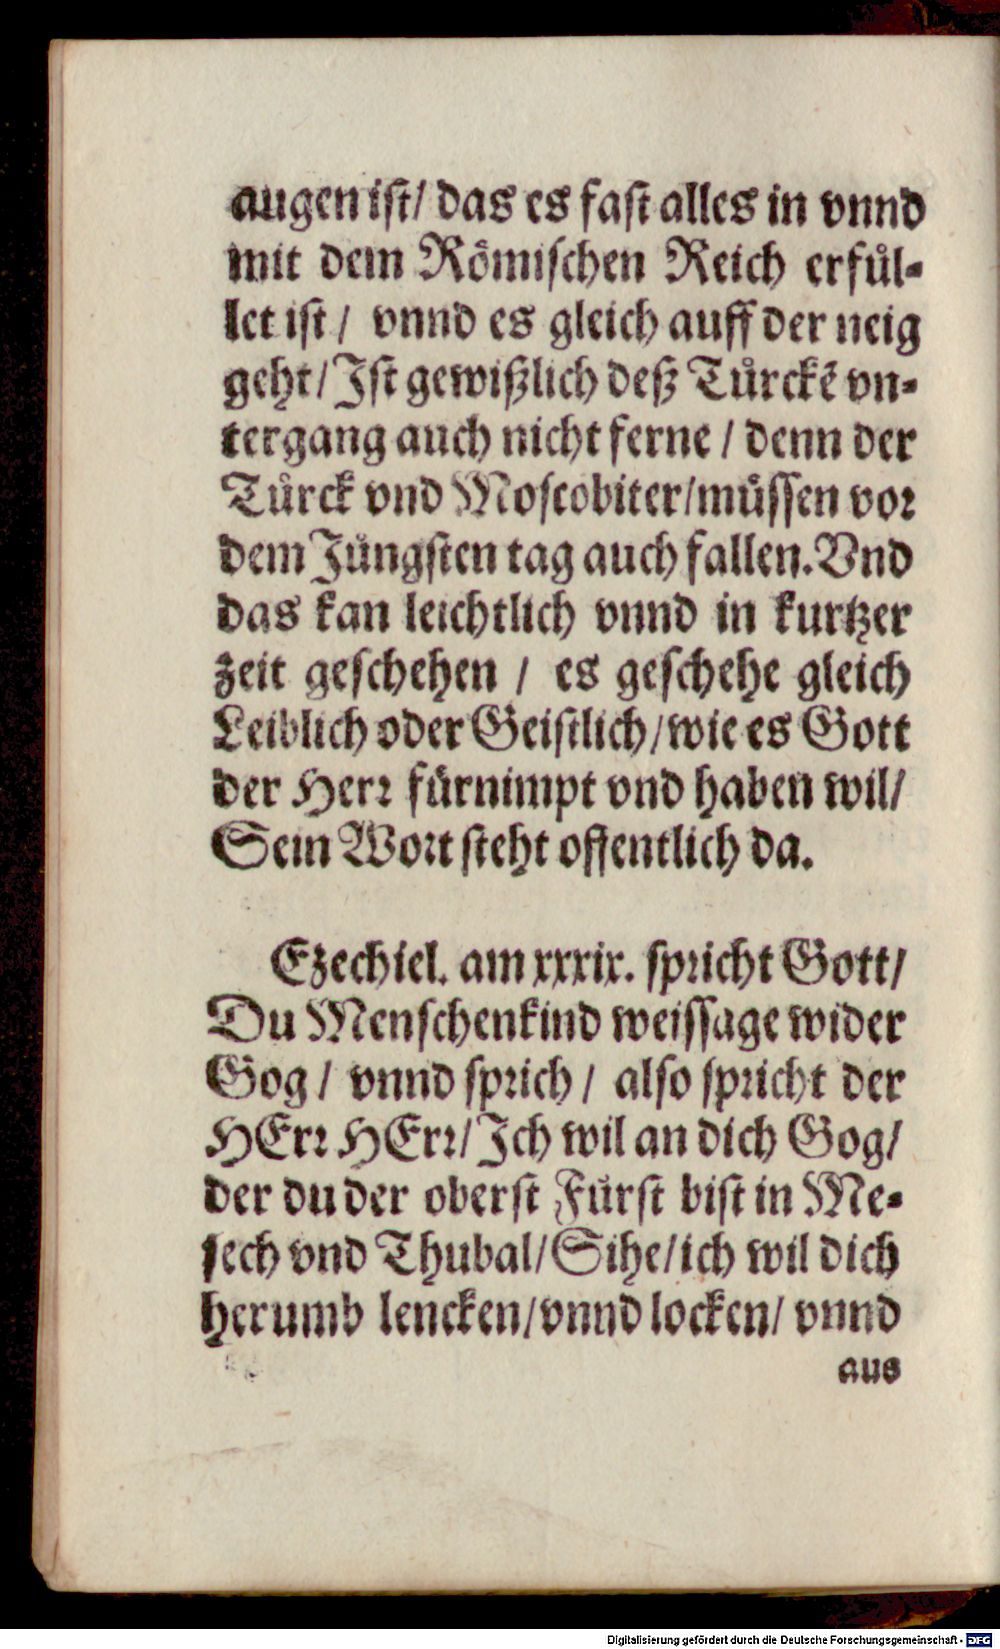 augen ist/ das es fast alles in vnnd
mit dem Roͤmischen Reich erfuͤl-
let ist / vnnd es gleich auff der neig
geht/ Ist gewißlich deß Tuͤrckẽ vn-
tergang auch nicht ferne / denn der
Tuͤrck vnd Moscobiter/muͤssen vor
dem Juͤngsten tag auch fallen. Vnd
das kan leichtlich vnnd in kurtzer
zeit geschehen / es geschehe gleich
Leiblich oder Geistlich/wie es Gott
der Herr fuͤrnimpt vnd haben wil/
Sein Wort steht offentlich da.
Ezechiel. am xxxix. spricht Gott/
Du Menschenkind weissage wider
Gog / vnnd sprich / also spricht der
HErr HErr/ Ich wil an dich Gog/
der du der oberst Fuͤrst bist in Me-
sech vnd Thubal/ Sihe/ ich wil dich
herumb lencken/vnnd locken/ vnnd
aus
Digitalisierung gefördert durch die Deutsche Forschungsgemeinschaft - DFG